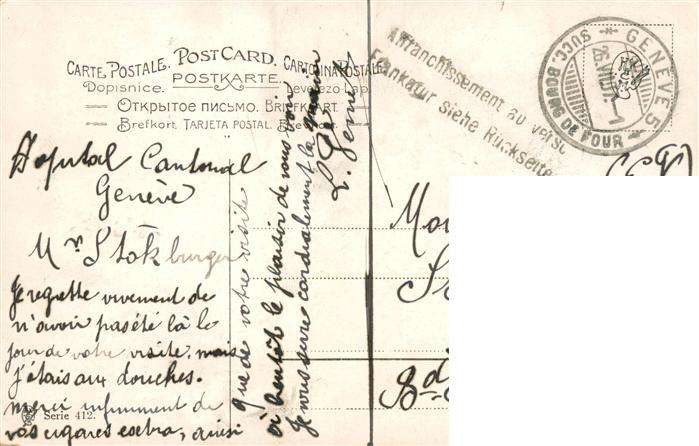 CARTE POSTALE. POST CARD. CARTOLINA POSTALE
Dopisnice. POSTKARTE. Levelezo Lap.
Открытое письмо. BRIEFKORT
Brefkort. TARJETA POSTAL.
Affranchissement au verso
Frankatur siehe Rückseite
GENÈVE 5
SUCC. BOURG DE FOUR
Hopital Cantonal
Genève
Mr Stokburger
Je regrette vivement de
n'avoir pas été là le
jour de votre visite. mais
j'étais aux douches.
merci infiniment de
vos cigares extra, ainsi
que de votre visite
à bientôt le plaisir de vous voir
Je vous serre cordialement la main
L.
Serie 412.
Bd